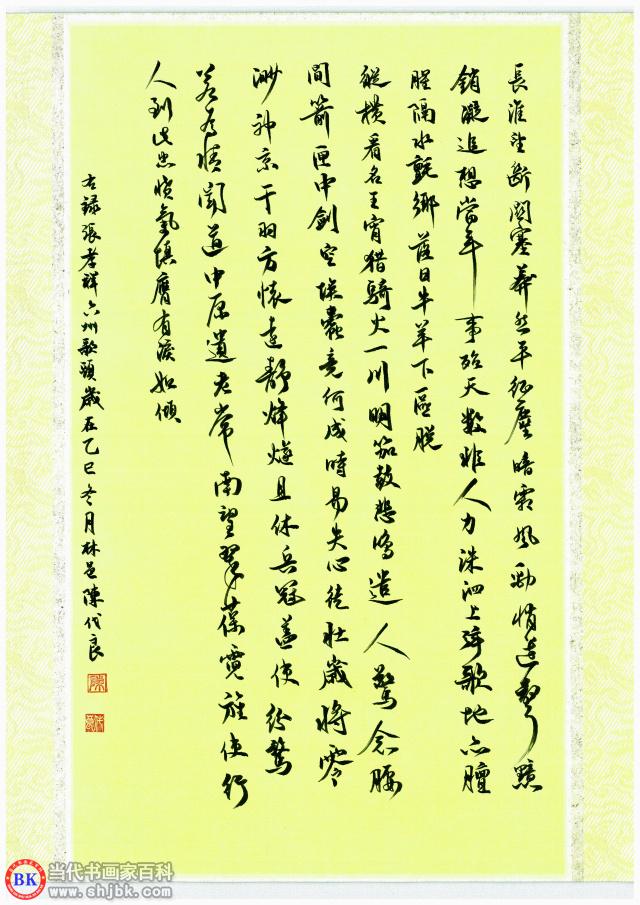 長淮望斷關塞莽然平征塵暗霜風勁悄邊聲黯
銷凝追想當年事殆天數非人力洙泗上弦歌地亦膻
腥隔水氈鄉落日牛羊下區脫
縱橫看名王宵獵騎火一川明笳鼓悲鳴遣人驚念腰
間箭匣中劍空埃蠹竟何成時易失心徒壯歲將零
渺神京干羽方懷遠靜烽燧且休兵冠蓋使紛騖
若為情聞道中原遺老常南望翠葆霓旌使行
人到此忠憤氣填膺有淚如傾
右錄張孝祥六州歌頭歲在乙巳冬月林邑陳代良
BK
当代书画家百科
www.shjbk.com